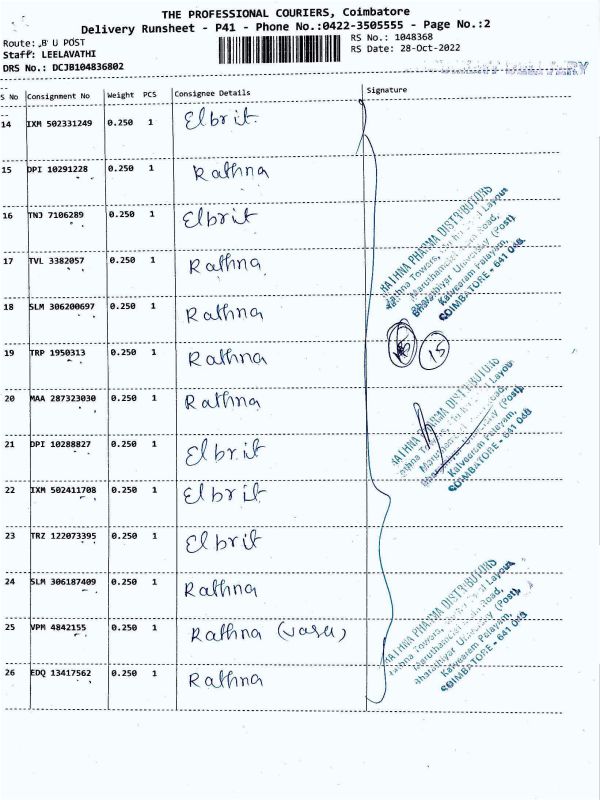 THE PROFESSIONAL COURIERS, Coimbatore
Delivery Runsheet - P41 - Phone No.:0422-3505555 - Page No.:2
Route: B U POST
RS No.: 1048368
Staff: LEELAVATHI
RS Date: 28-Oct-2022
DRS No.: DCJB104836802
S No Consignment No Weight PCS Consignee Details Signature
14 IXM 502331249 0.250 1 Elbrit
15 DPI 10291228 0.250 1 Rathna
16 TNJ 7106289 0.250 1 Elbrit
17 TVL 3382057 0.250 1 Rathna
18 SLM 306200697 0.250 1 Rathna
19 TRP 1950313 0.250 1 Rathna
20 MAA 287323030 0.250 1 Rathna
21 DPI 10288827 0.250 1 Elbrit
22 IXM 502411708 0.250 1 Elbrit
23 TRZ 122073395 0.250 1 Elbrit
24 SLM 306187409 0.250 1 Rathna
25 VPM 4842155 0.250 1 Rathna (vasu)
26 EDQ 13417562 0.250 1 Rathna
RATHNA PHARMA DISTRIBUTORS
Rathna Towers,
Bharathiyar University (Post),
Kalveeram Palayam,
COIMBATORE - 641 046
15
RATHNA PHARMA DISTRIBUTORS
University (Post),
Kalveeram Palayam,
COIMBATORE - 641 046
RATHNA PHARMA DISTRIBUTORS
Rathna Towers,
Bharathiyar University (Post),
Kalveeram Palayam,
COIMBATORE - 641 046